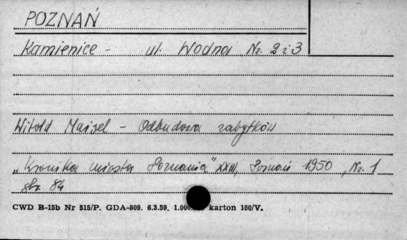 POZNAŃ
Kamienice - ul. Wodna Nr. 2 i 3
Witold Maisel - Odbudowa zabytków
„Kronika miasta Poznania" XXIII, Poznań 1950, Nr. 1
str. 84
CWD B-15b Nr 515/P. GDA-809. 6.3.59, 1.000 karton 180/V.